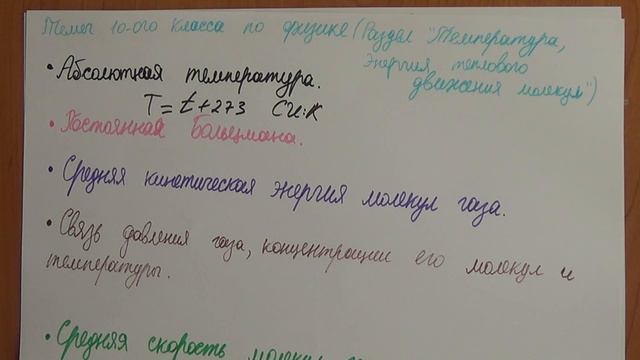 Темы 10-ого класса по физике (Раздел "Температура,
энергия теплового
движения молекул")
• Абсолютная температура.
T = t + 273 СИ: К
• Постоянная Больцмана.
• Средняя кинетическая энергия молекул газа.
• Связь давления газа, концентрации его молекул и
температуры.
• Средняя скорость молекул